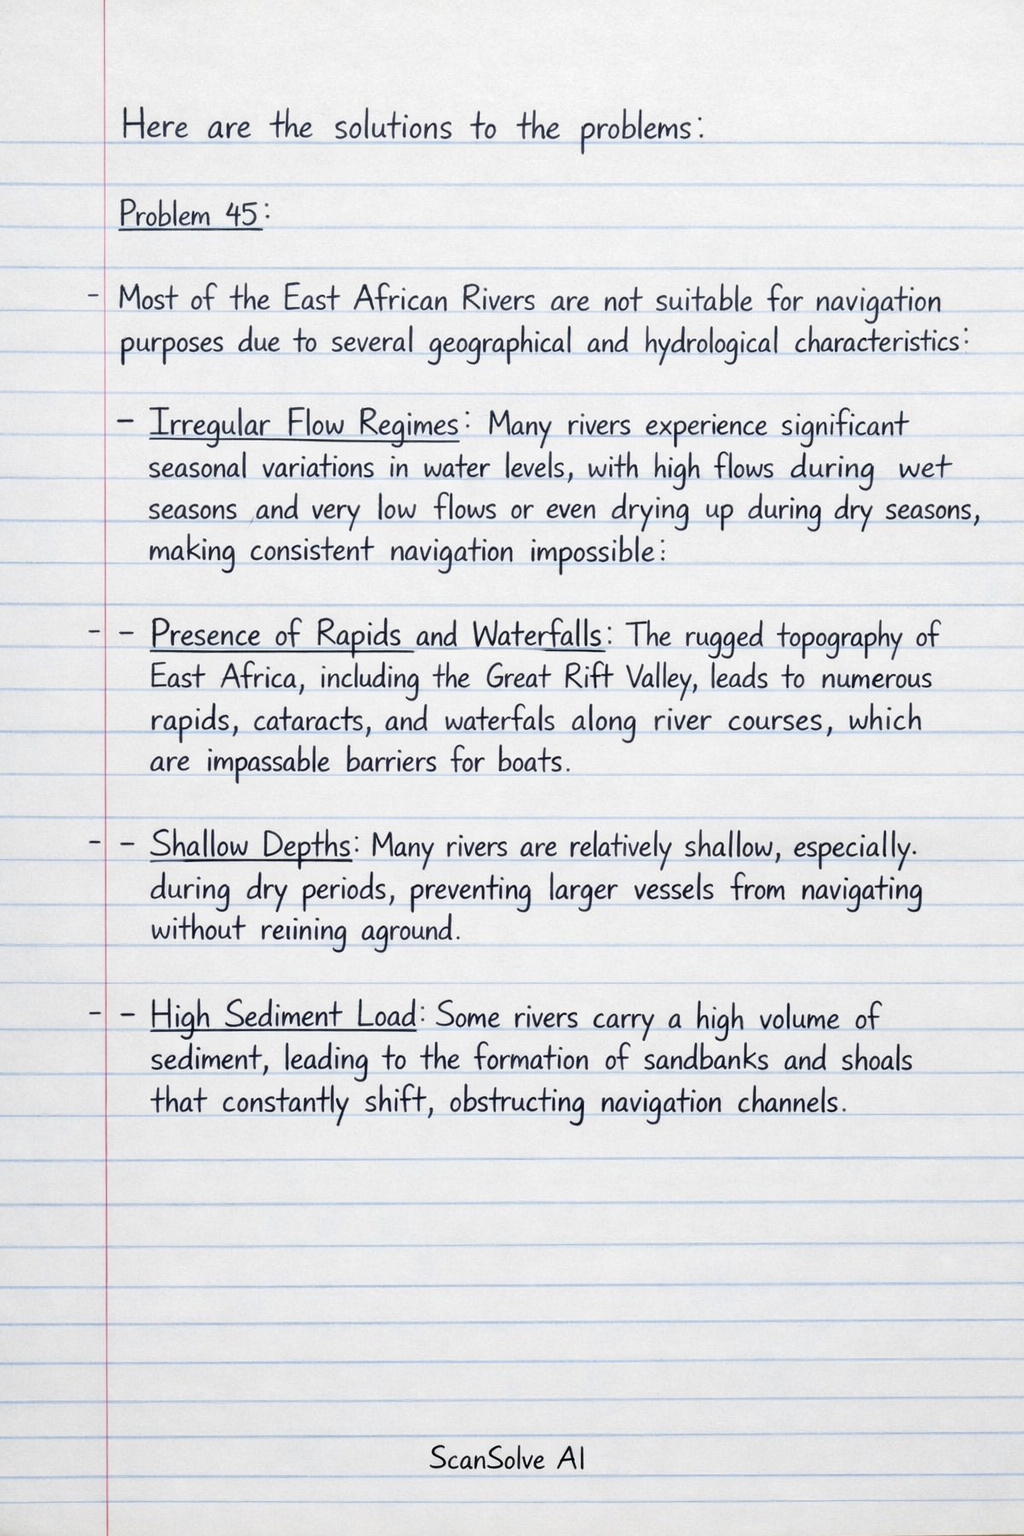 Here are the solutions to the problems:
Problem 45:
- Most of the East African Rivers are not suitable for navigation
purposes due to several geographical and hydrological characteristics:
- Irregular Flow Regimes: Many rivers experience significant
seasonal variations in water levels, with high flows during wet
seasons and very low flows or even drying up during dry seasons,
making consistent navigation impossible:
- - Presence of Rapids and Waterfalls: The rugged topography of
East Africa, including the Great Rift Valley, leads to numerous
rapids, cataracts, and waterfals along river courses, which
are impassable barriers for boats.
- - Shallow Depths: Many rivers are relatively shallow, especially.
during dry periods, preventing larger vessels from navigating
without aground.
- - High Sediment Load: Some rivers carry a high volume of
sediment, leading to the formation of sandbanks and shoals
that constantly shift, obstructing navigation channels.
ScanSolve AI